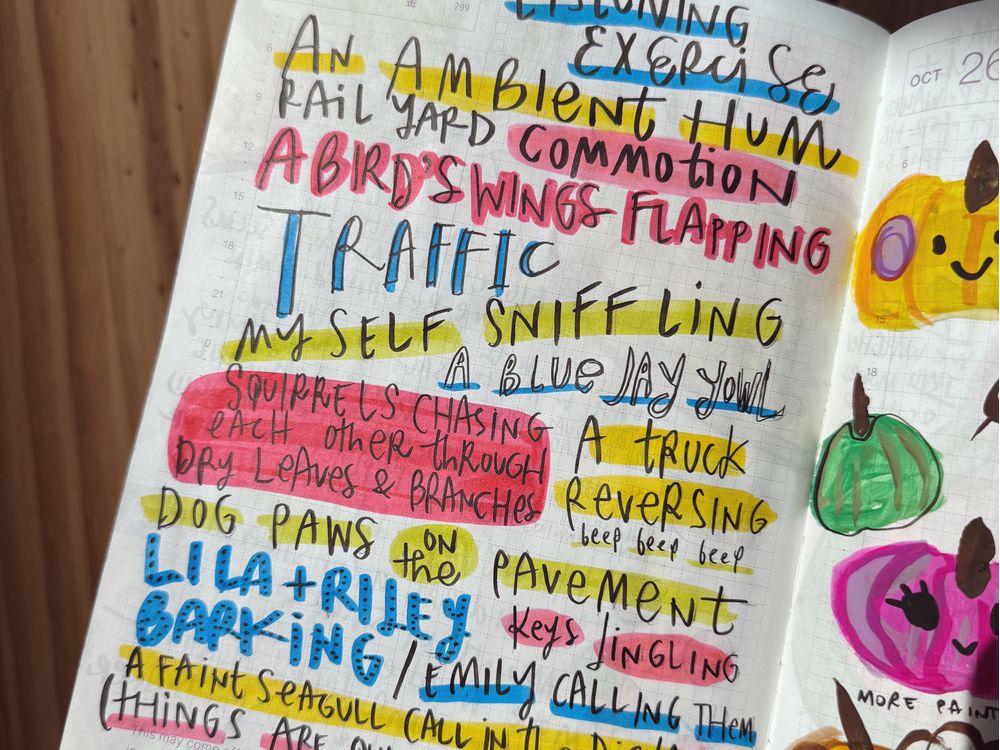 金 299
LISTENING
EXERCISE
AN AMBIENT HUM
RAIL YARD COMMOTION
A BIRD'S WINGS FLAPPING
TRAFFIC
MYSELF SNIFFLING
A BLUE JAY YOWL
SQUIRRELS CHASING
EACH OTHER THROUGH
DRY LEAVES & BRANCHES
A TRUCK
REVERSING
beep beep beep
DOG PAWS ON
the PAVEMENT
LILA + RILEY
BARKING
KEYS JINGLING
/ EMILY CALLING THEM
A FAINT SEAGULL CALL IN THE
(THINGS ARE
This may come
6
9
12
15
18
21
0
OCT 26
6
15
18
MORE PAINT